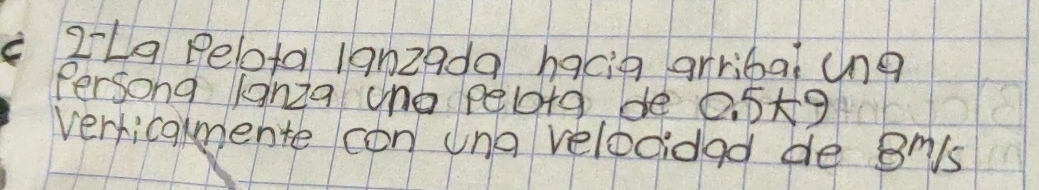 2-La Pelota lanzada hacia arriba: una
Persona lanza una pelota de 0.5kg
verticalmente con una velocidad de 8m/s